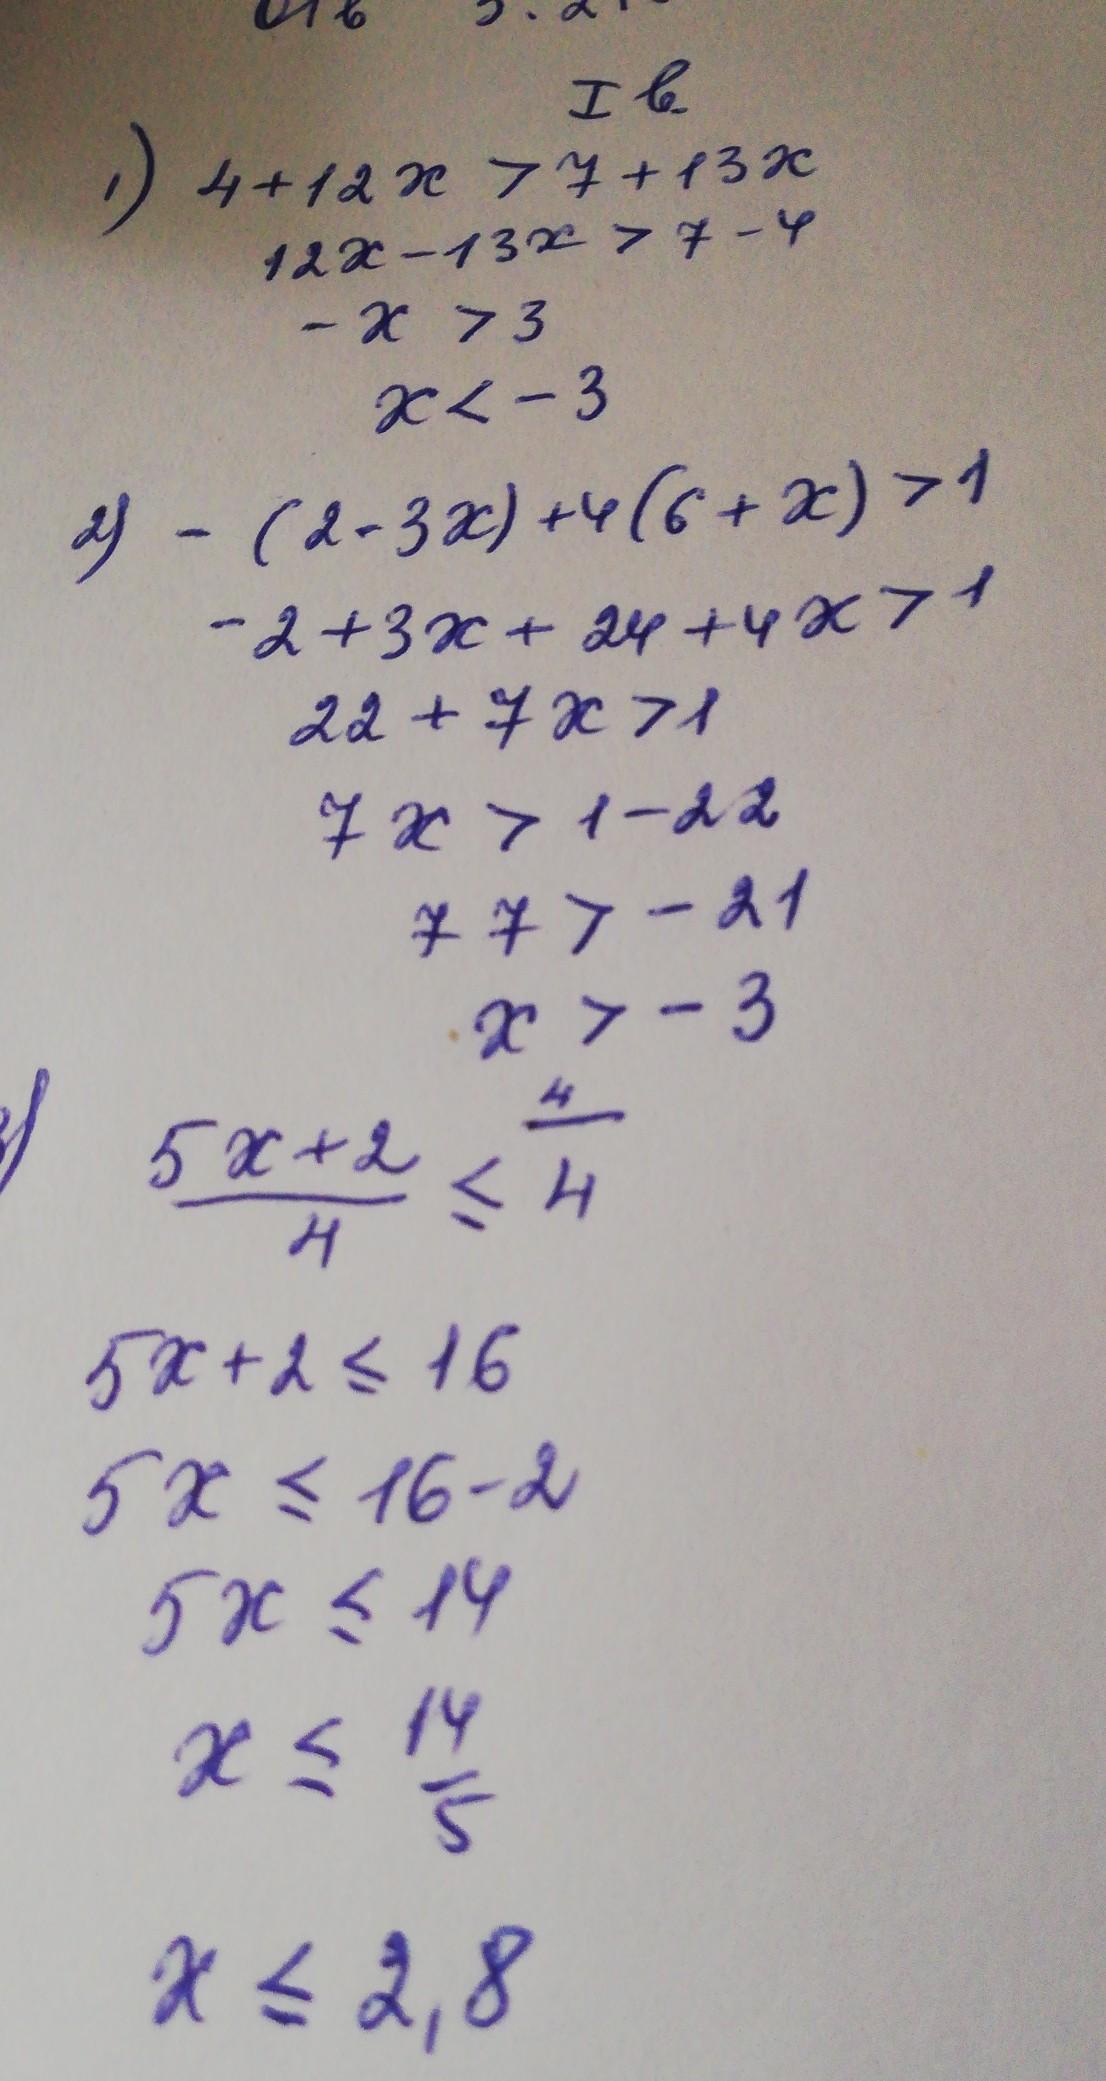 I в.
1) 4+12x > 7+13x
12x-13x > 7-4
-x > 3
x < -3
2) -(2-3x)+4(6+x) > 1
-2+3x+24+4x > 1
22+7x > 1
7x > 1-22
77 > -21
x > -3
5x+2/4 ≤ 4/4
5x+2 ≤ 16
5x ≤ 16-2
5x ≤ 14
x ≤ 14/5
x ≤ 2,8